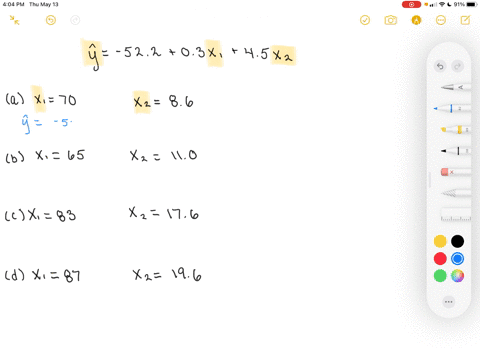 4:04 PM Thu May 13
91%
ŷ = -52.2 + 0.3x₁ + 4.5x₂
(a) x₁=70 x₂ = 8.6
ŷ = -5.
(b) x₁ = 65 x₂ = 11.0
(c) x₁ = 83 x₂ = 17.6
(d) x₁ = 87 x₂ = 19.6